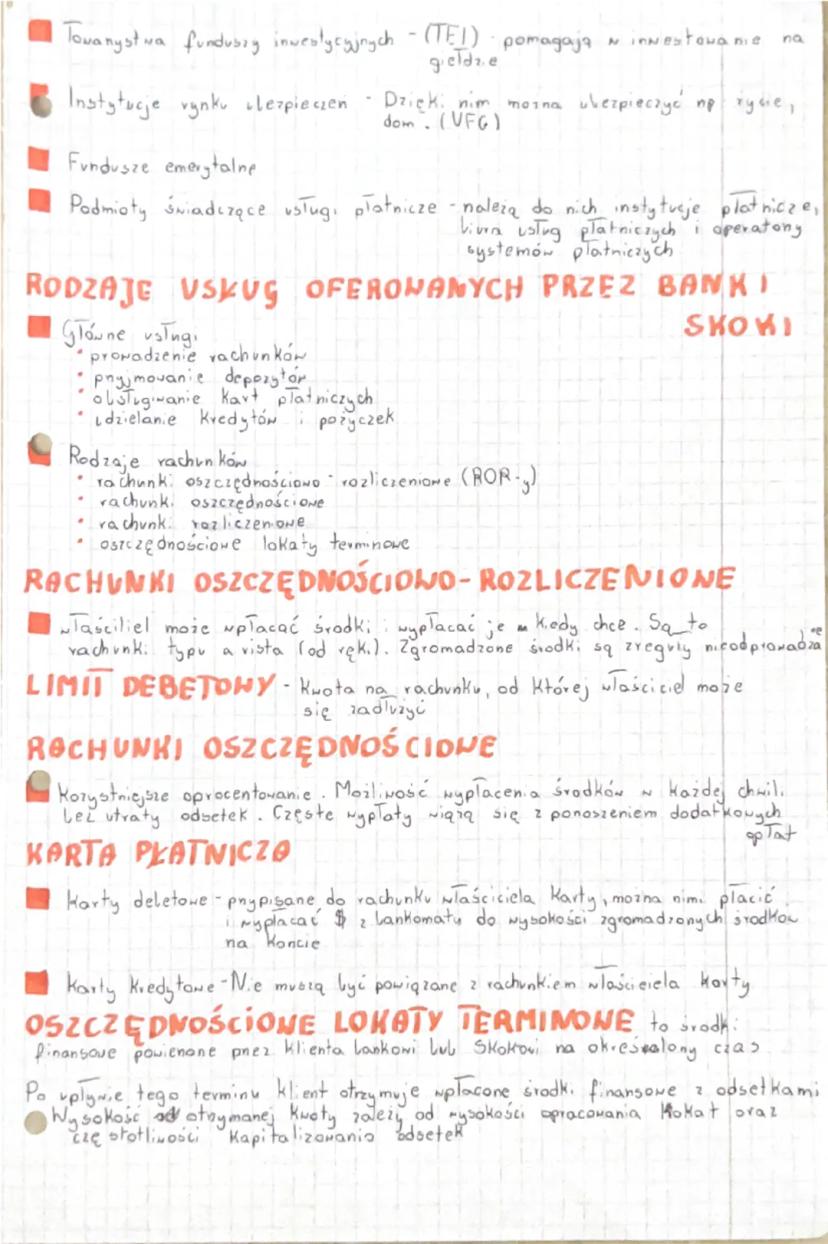 Towarzystwa funduszy inwestycyjnych - (TFI) - pomagają w inwestowanie na
giełdzie
Instytucje rynku ubezpieczeń - Dzięki nim można ubezpieczyć np życie,
dom. (UFG)
Fundusze emerytalne
Podmioty świadczące usługi płatnicze - należą do nich instytucje płatnicze,
biura usług płatniczych i operatorzy
systemów płatniczych
RODZAJE USŁUG OFEROWANYCH PRZEZ BANKI
SKOKI
Główne usługi
• prowadzenie rachunków
• przyjmowanie depozytów
• obsługiwanie kart płatniczych
• udzielanie kredytów i pożyczek
Rodzaje rachunków
• rachunki oszczędnościowo - rozliczeniowe (ROR-y)
• rachunki oszczędnościowe
• rachunki rozliczeniowe
• oszczędnościowe lokaty terminowe
RACHUNKI OSZCZĘDNOŚCIOWO-ROZLICZENIONE
właściliel może wpłacać środki i wypłacać je kiedy chce. Są to
rachunki typu a vista (od ręki). Zgromadzone środki są zreguły nieodprowadza
LIMIT DEBETOWY - Kwota na rachunku, od której właściciel może
się zadłużyć
RACHUNKI OSZCZĘDNOŚCIOWE
Korzystniejsze oprocentowanie. Możliwość wypłacenia środków w każdej chwili
bez utraty odsetek. Częste wypłaty wiążą się z ponoszeniem dodatkowych
opłat
KARTA PŁATNICZA
Karty debetowe - przypisane do rachunku właściciela karty, można nimi płacić
i wypłacać $ z bankomatu do wysokości zgromadzonych środków
na koncie
Karty kredytowe - Nie muszą być powiązane z rachunkiem właściciela karty
OSZCZĘDNOŚCIOWE LOKATY TERMINOWE to środki
finansowe powierzone przez klienta bankowi lub SKOKowi na określony czas
Po upływie tego terminu klient otrzymuje wpłacone środki finansowe z odsetkami
Wysokość otrzymanej kwoty zależy od wysokości opracowania lokat oraz
częstotliwości kapitalizowania odsetek